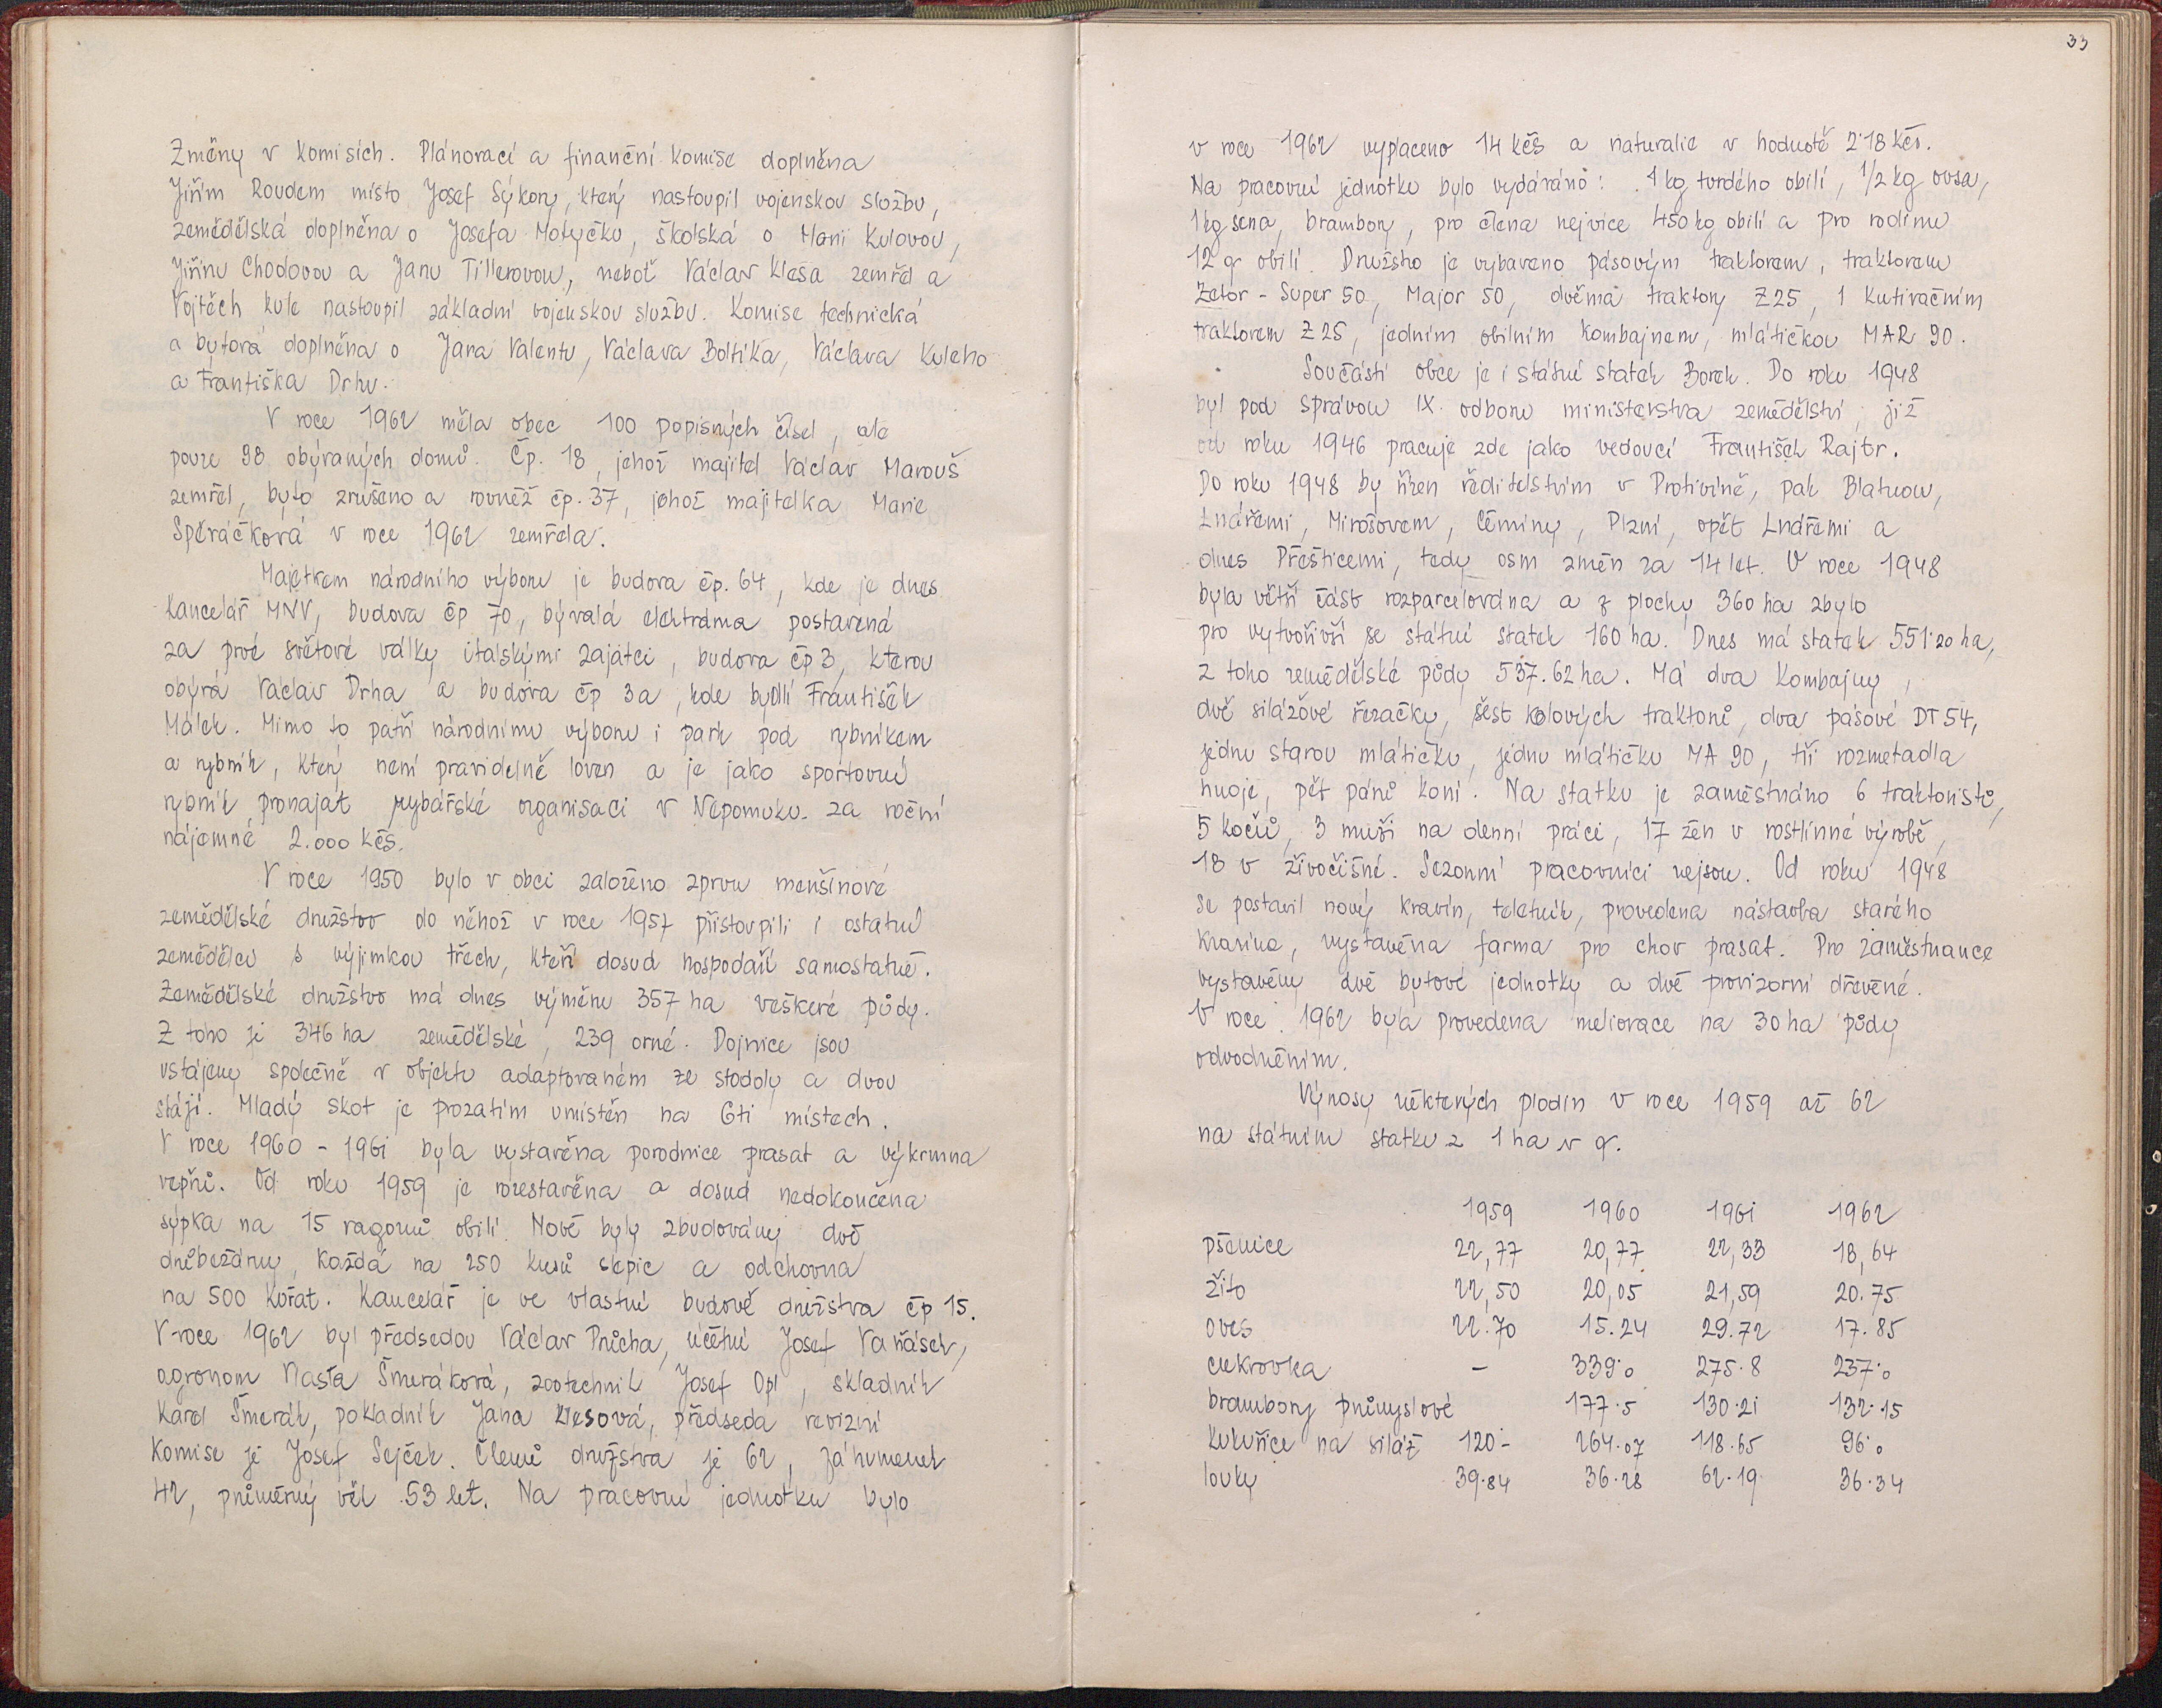 Změny v komisích. Plánovací a finanční komise doplněna
Jiřím Roudem místo Josef Sýkory, který nastoupil vojenskou službu,
zemědělská doplněna o Josefa Motyčku, školská o Marii Kulovou,
Jiřinu Chodovou a Janu Tillerovou, neboť Václav Klesa zemřel a
Vojtěch Kule nastoupil základní vojenskou službu. Komise technická
a bytová doplněna o Jana Valentu, Václava Boltíka, Václava Kuleho
a Františka Drhu.
V roce 1962 měla obec 100 popisných čísel, ale
pouze 98 obývaných domů. Čp. 18, jehož majitel Václav Marouš
zemřel, bylo zrušeno a rovněž čp. 37, jehož majitelka Marie
Speráčková v roce 1962 zemřela.
Majetkem národního výboru je budova čp. 64, kde je dnes
kancelář MNV, budova čp 70, bývalá elektrárna postavená
za prvé světové války italskými zajatci, budova čp 3, kterou
obývá Václav Drha a budova čp 3a, kde bydlí František
Málek. Mimo to patří národnímu výboru i park pod rybníkem
a rybník, který není pravidelně loven a je jako sportovní
rybník pronajat rybářské organisaci v Nepomuku za roční
nájemné 2.000 Kčs.
V roce 1950 bylo v obci založeno zprvu menšinové
zemědělské družstvo do něhož v roce 1957 přistoupili i ostatní
zemědělci s výjimkou třech, kteří dosud hospodaří samostatně.
Zemědělské družstvo má dnes výměru 357 ha veškeré půdy.
Z toho je 346 ha zemědělské, 239 orné. Dojnice jsou
ustájeny společně v objektu adaptovaném ze stodoly a dvou
stájí. Mladý skot je prozatím umístěn na 6ti místech.
V roce 1960 - 1961 byla vystavěna porodnice prasat a výkrmna
vepřů. Od roku 1959 je rozestavěna a dosud nedokončena
sýpka na 15 vagonů obilí. Nově byly zbudovány dvě
drůbežárny, každá na 250 kusů slepic a odchovna
na 500 kuřat. Kancelář je ve vlastní budově družstva čp 15.
V roce 1962 byl předsedou Václav Průcha, účetní Josef Vaňásek,
agronom Nasťa Šmeráková, zootechnik Josef Opl, skladník
Karel Šmerák, pokladník Jana Klesová, předseda revizní
komise je Josef Sejček. Členů družstva je 62, záhumenek
42, průměrný věk 53 let. Na pracovní jednotku bylo
33
v roce 1962 vyplaceno 14 kčs a naturalie v hodnotě 2'18 Kčs.
Na pracovní jednotku bylo vydáváno: 1 kg tvrdého obilí, 1/2 kg ovsa,
1 kg sena, brambory, pro člena nejvíce 450 kg obilí a pro rodinu
12 q obilí. Družstvo je vybaveno pásovým traktorem, traktorem
Zetor - Super 50, Major 50, dvěma traktory Z 25, 1 kutivačním
traktorem Z 25, jedním obilním kombajnem, mlátičkou MAR 90.
Součástí obce je i státní statek Borek. Do roku 1948
byl pod správou IX. odboru ministerstva zemědělství, již
od roku 1946 pracuje zde jako vedoucí František Rajtr.
Do roku 1948 by řízen ředitelstvím v Protivíně, pak Blatnou,
Lnářemi, Mirošovem, Čéminy, Plzní, opět Lnářemi a
dnes Přešticemi, tedy osm změn za 14 let. V roce 1948
byla větší část rozparcelována a z plochy 360 ha zbylo
pro vytvořivší se státní statek 160 ha. Dnes má statek 551'20 ha,
z toho zemědělské půdy 537.62 ha. Má dva kombajny,
dvě silážové řezačky, šest kolových traktorů, dva pásové DT 54,
jednu starou mlátičku, jednu mlátičku MA 90, tři rozmetadla
hnoje, pět párů koní. Na statku je zaměstnáno 6 traktoristů,
5 kočů, 3 muži na denní práci, 17 žen v rostlinné výrobě,
18 v živočišné. Sezonní pracovníci nejsou. Od roku 1948
se postavil nový kravín, teletník, provedena nástavba starého
kravína, vystavěna farma pro chov prasat. Pro zaměstnance
vystavěny dvě bytové jednotky a dvě provizorní dřevěné.
V roce 1962 byla provedena meliorace na 30 ha půdy
odvodněním.
Výnosy některých plodin v roce 1959 až 62
na státním statku z 1 ha v q.
1959 1960 1961 1962
pšenice 22,77 20,77 22,33 18,64
žito 22,50 20,05 21,59 20.75
oves 22.70 15.24 29.72 17.85
cukrovka - 339'0 275.8 237'0
brambory průmyslové 177.5 130.21 132.15
kukuřice na siláž 120- 264.07 118.65 96'0
louky 39.84 36.28 62.19 36.34